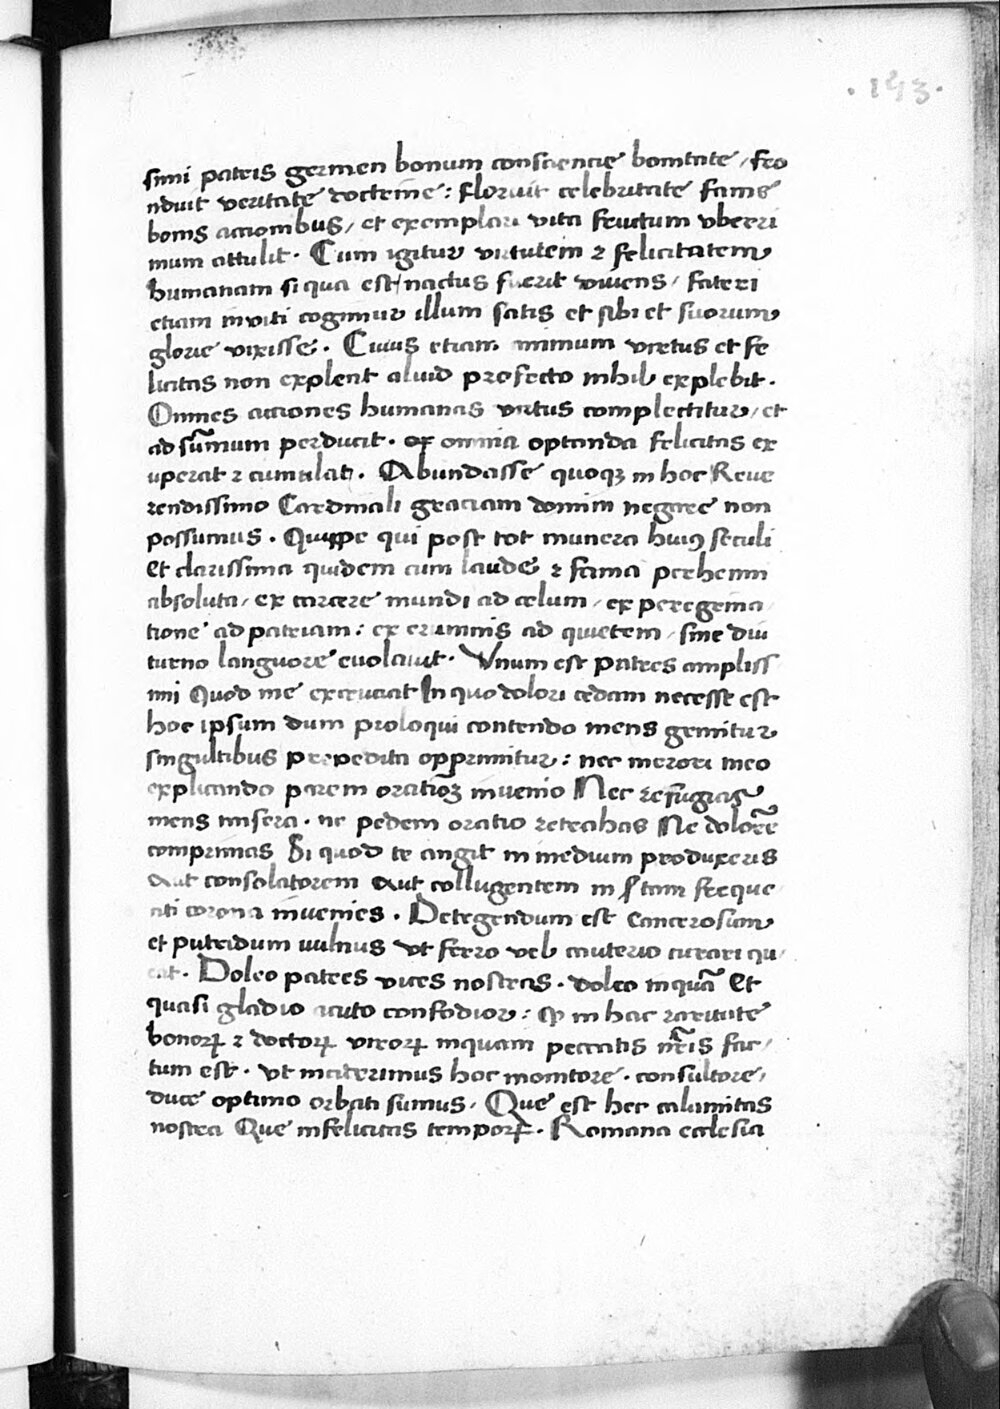 ·193·
simi patris germen bonum consciencie bonitate / fro
nduit veritate doctrine : floruit celebritate fame
bonis accionibus / et exemplari vita fructum vberri
mum attulit . Cum igitur virtutem ⁊ felicitatem
humanam si qua est / nactus fuerit vivens / fateri
etiam inviti cogimur illum satis et sibi et suorum
glorie vixisse . Cuius etiam animum virtus et fe
licitas non explent aliud profecto nihil explebit .
Omnes acciones humanas virtus complectitur / et
ad su᷃mum perducit . omnia optanda felicitas ex
uperat ⁊ cumulat . Abundasse quoqꝫ in hoc Reve
rendissimo Cardinali graciam domini negare non
possumus . Quippe qui post tot munera huiꝰ seculi
et clarissima quidem cum laude ⁊ fama perhenni
absoluta / ex carcere mundi ad celum / ex peregrina
tione ad patriam : ex erumnis ad quietem / sine diu
turno languore evolavit . Vnum est patres ampliss
imi Quod me excruciat In quo dolori cedam necesse est
hoc ipsum dum proloqui contendo mens gemitur
singultibus prepedita opprimitur : nec merori meo
explicando parem oratio᷃ꝫ invenio Nec refugias
mens misera . ne pedem oratio retrahas Ne dolore᷃
comprimas Si quod te angit in medium produxeris
aut consolatorem aut collugentem in tam freque
nti corona invenies . Detegendum est cancerosum
et putridum vulnus vt ferro vel cauterio curari qu
eat . Doleo patres vices nostras . doleo inqua᷃ Et
quasi gladio acuto confodior : in hac raritate
bonorꝝ ⁊ doctorꝝ virorꝝ inquam peccatis nr᷃is fac /
tum est . vt monitore . consultore /
duce optimo orbati sumus / Que est hec calamitas
nostra Que infelicitas temporꝝ . Romana ecclesia